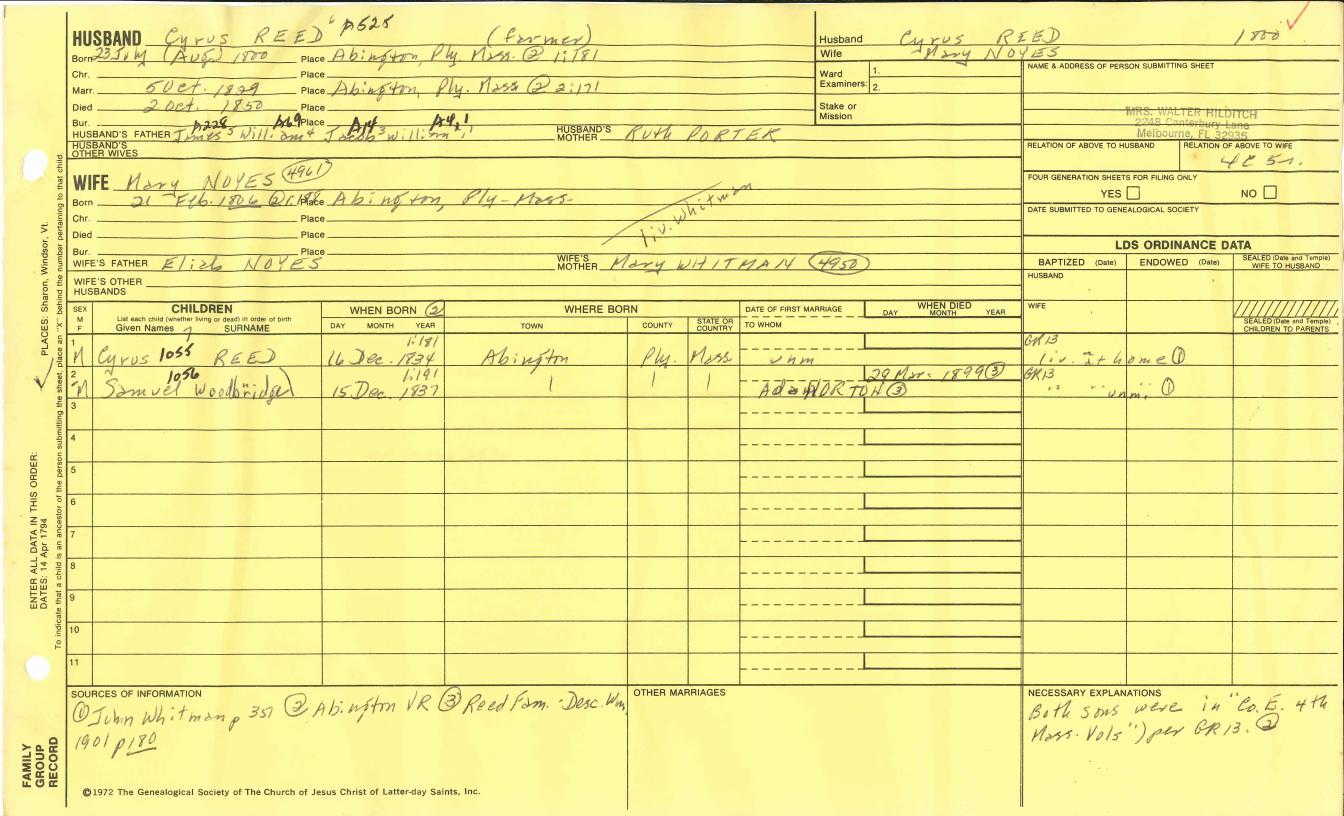 HUSBAND Cyrus REED A525 (farmer)
Born 23 July (Aug) 1800 Place Abington, Ply. Mass. ② 1:181
Chr. Place
Marr. 5 Oct. 1829 Place Abington, Ply. Mass ② 2:171
Died 2 Oct. 1850 Place
Bur. Place
A228 A69 A14 A4,1
HUSBAND'S FATHER James⁵ William⁴ Jacob³ William
HUSBAND'S MOTHER Ruth PORTER
HUSBAND'S OTHER WIVES
WIFE Mary NOYES 4961
Born 21 Feb. 1806 Place Abington, Ply-Mass-
Chr. Place
Died Place
Bur. Place
liv. Whitman
WIFE'S FATHER NOYES
WIFE'S MOTHER Mary WHITMAN 4950
WIFE'S OTHER HUSBANDS
Husband Cyrus REED 1800
Wife Mary NOYES
Ward Examiners: 1. 2.
Stake or Mission
NAME & ADDRESS OF PERSON SUBMITTING SHEET
MRS. WALTER HILDITCH
2248 Canterbury Lane
Melbourne, FL 32935
RELATION OF ABOVE TO HUSBAND
RELATION OF ABOVE TO WIFE
4C 5r.
FOUR GENERATION SHEETS FOR FILING ONLY
YES NO
DATE SUBMITTED TO GENEALOGICAL SOCIETY
LDS ORDINANCE DATA
BAPTIZED (Date) ENDOWED (Date) SEALED (Date and Temple) WIFE TO HUSBAND
HUSBAND
WIFE
SEALED (Date and Temple) CHILDREN TO PARENTS
SEX M F
CHILDREN
List each child (whether living or dead) in order of birth
Given Names SURNAME
WHEN BORN ②
DAY MONTH YEAR
WHERE BORN
TOWN COUNTY STATE OR COUNTRY
DATE OF FIRST MARRIAGE
TO WHOM
WHEN DIED
DAY MONTH YEAR
1 M Cyrus 1055 REED 16 Dec. 1834 1:181 Abington Ply. Mass unm GR13 liv. at home ①
2 M Samuel Woodbridge 1056 15 Dec. 1837 1:191 " " " Ada NORTON ③ 29 Mar. 1899 ③ GR13 " " "unm." ①
3
4
5
6
7
8
9
10
11
SOURCES OF INFORMATION
① John Whitman p 351 ② Abington VR ③ Reed Fam.-Desc. Wm
1901 p180
OTHER MARRIAGES
NECESSARY EXPLANATIONS
Both sons were in "Co. E. 4th
Mass. Vols") per GR13. ②
©1972 The Genealogical Society of The Church of Jesus Christ of Latter-day Saints, Inc.
FAMILY GROUP RECORD
ENTER ALL DATA IN THIS ORDER:
DATES: 14 Apr 1794
PLACES: Sharon, Windsor, Vt.
To indicate that a child is an ancestor of the person submitting the sheet, place an "X" behind the number pertaining to that child.